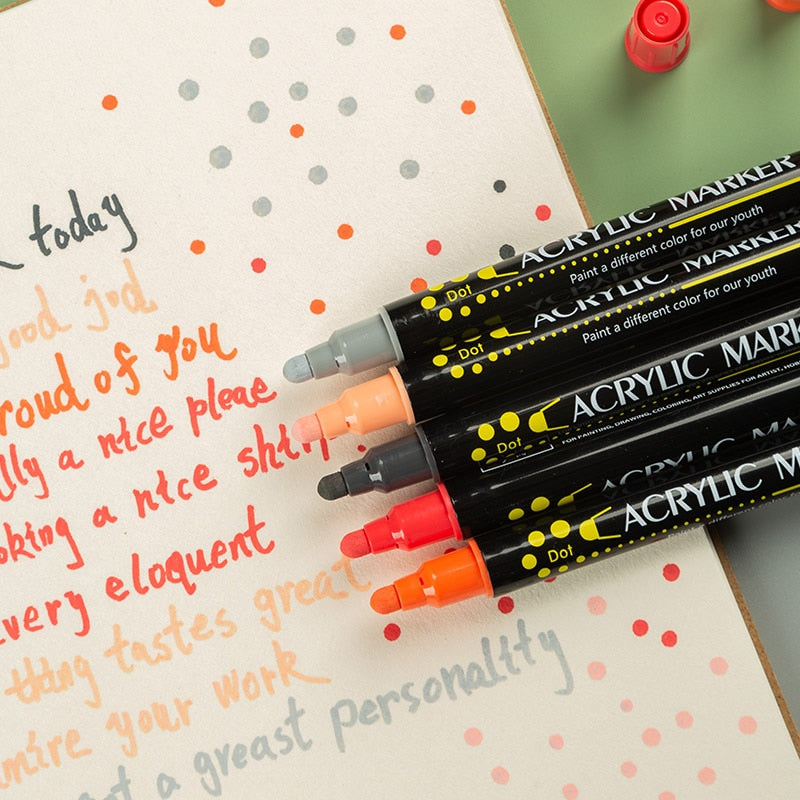 today
good jod
roud of you
lly a nice pleae
oking a nice shirt
very eloquent
thing tastes great
mire your work
a greast personality
Dot ACRYLIC MARKER
Paint a different color for our youth
Dot ACRYLIC MARKER
Paint a different color for our youth
Dot ACRYLIC MARK
FOR PAINTING, DRAWING, COLORING, ART SUPPLIES FOR ARTIST, HOB
ACRYLIC MA
Dot ACRYLIC M